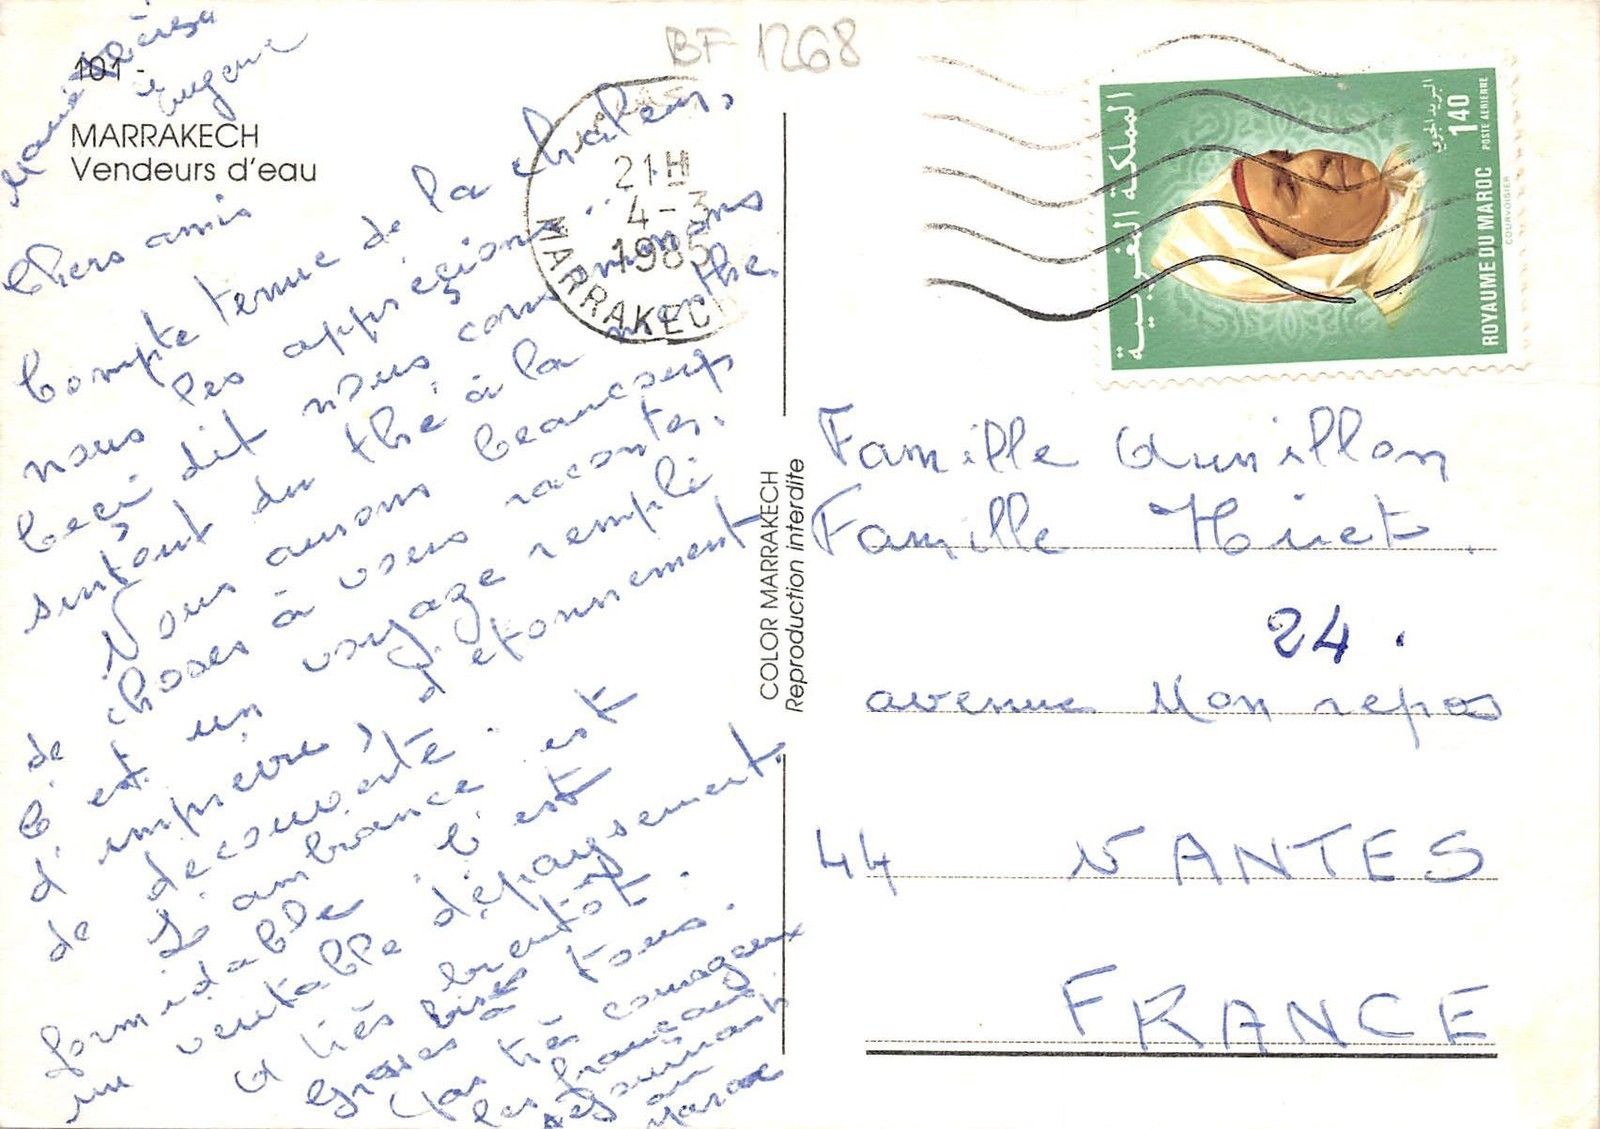 BF 1268
101 -
MARRAKECH
Vendeurs d'eau
Marie Thérèse
Eugene
Chers amis
Compte tenue de la chaleur,
nous les apprécions..
Ceçi dit nous consommons
surtout du thé à la menthe
Nous aurons beaucoup
de choses à vous raconter.
C'est un voyage rempli
d'imprévu, d'étonnement
de découverte.
L'ambiance est
formidable. C'est
un veritable dépaysement.
A très bientôt.
Grosses bises à tous.
Pas très courageux
les français
séjournant
au
Maroc
21H
4-3
1985
MARRAKECH
المملكة المغربية
البريد الجوي
1.40
POSTE AERIENNE
ROYAUME DU MAROC
COURVOISIER
COLOR MARRAKECH
Reproduction interdite
Famille
Famille Huet.
24.
avenue Mon repos
44 NANTES
FRANCE